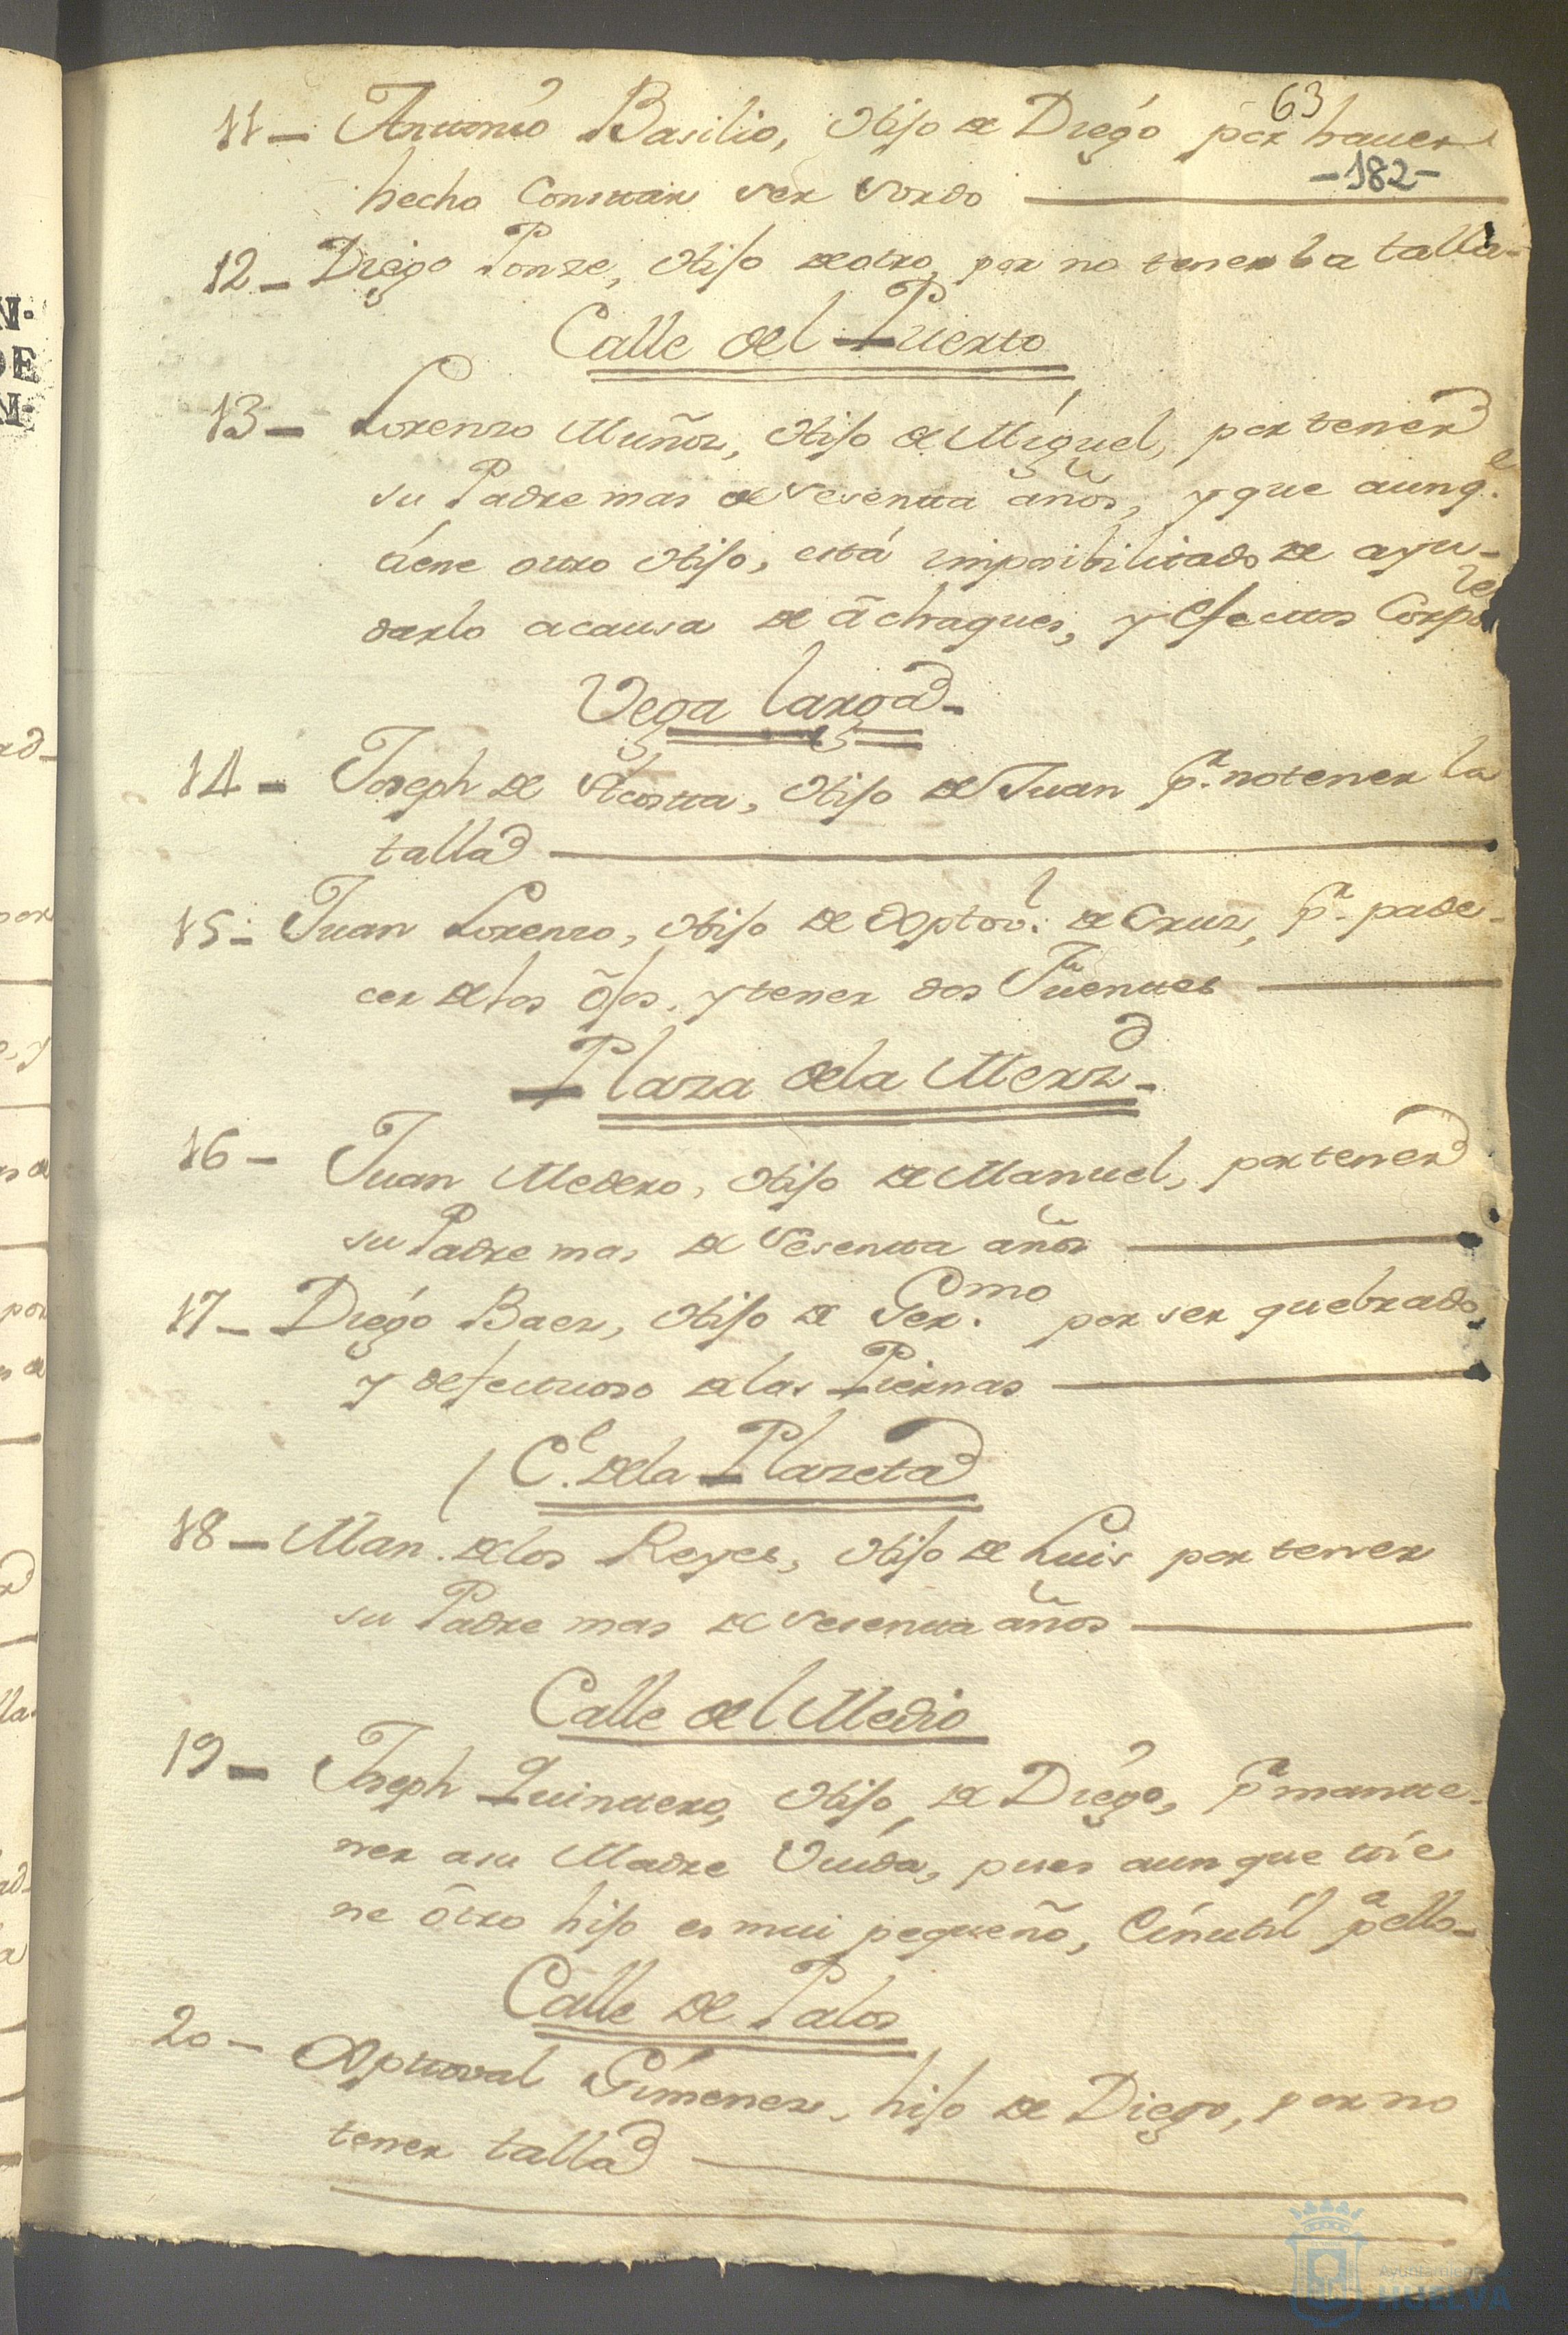 63
11 - Antonio Basilio, Hijo de Diego por hauer
-182-
hecho Constar ser sordo
12 - Diego Ponze, Hijo de otro, por no tener la talla -
Calle del Puerto
13 - Lorenzo Muñoz, Hijo de Miguel, por tener
su Padre mas de sesenta años, y que aunq.e
tiene otro Hijo, está imposibilitado de ayu-
darlo acausa de achaques, y efectos Corpo
Vega larga -
14 - Joseph de Acosta, Hijo de Juan p.r no tener la
talla
15 - Juan Lorenzo, Hijo de Xptov.l de Cruz, p.r pade-
cer de los ojos, y tener dos Fuentes
Plaza de la Merzd -
16 - Juan Medero, Hijo de Manuel, por tener
su Padre mas de sesenta años
17 - Diego Baez, Hijo de Ger.mo por ser quebrado,
y defectuoso de las Piernas
C.e de la Plazeta
18 - Man. de los Reyes, Hijo de Luis por tener
su Padre mas de sesenta años
Calle del Medio
19 - Joseph Quintero, Hijo, de Diego, p.r mante-
ner a su Madre Viuda, pues aunque tie
ne otro hijo es mui pequeño, é inutil p.a ello -
Calle de Palos
20 - Xptoval Gimenez, hijo de Diego, por no
tener talla
N.
DE
N.
Ayuntamiento
HUELVA